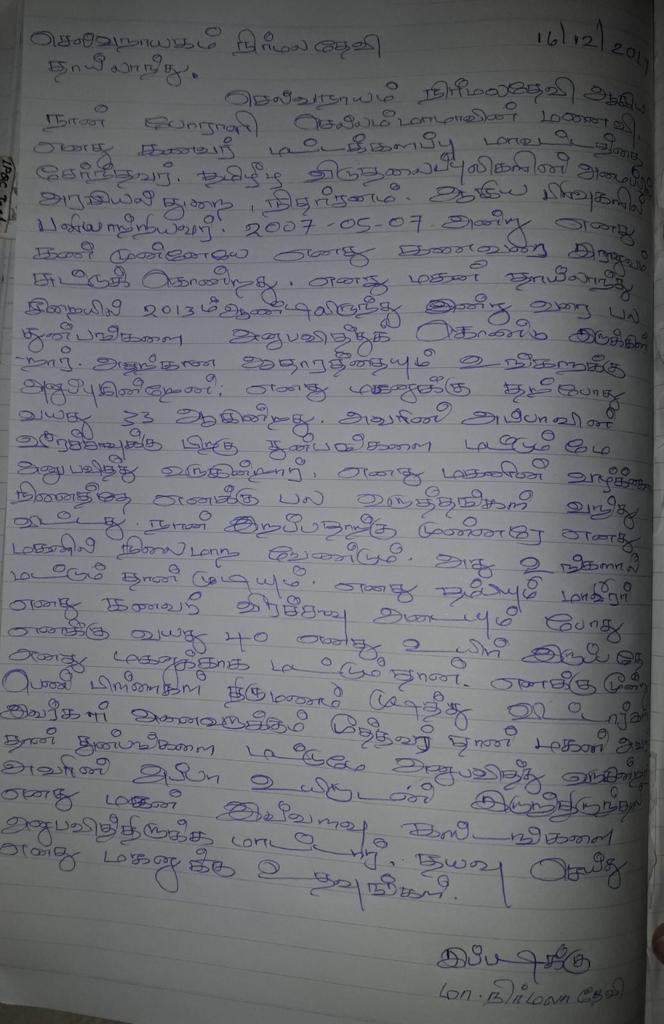 செல்வநாயகம் நிர்மலதேவி 16/12/2019
தாய்லாந்து.
செல்வநாயம் நிர்மலதேவி ஆகிய
நான் போராளி செல்லம்மாமாவின் மனைவி.
எனது கணவர் மட்டக்களப்பு மாவட்டத்தை
சேர்ந்தவர். தமிழீழ விடுதலைப்புலிகளின் அமைப்பில்
அரசியல் துறை, நிதர்சனம். ஆகிய பிரிவுகளில்
பணியாற்றியவர். 2007-05-07 அன்று எனது
கண் முன்னேயே எனது கணவரை இராணுவம்
சுட்டுக் கொன்றது. எனது மகன் தாய்லாந்து
சிறையில் 2013ம் ஆண்டிலிருந்து இன்று வரை பல
துன்பங்களை அனுபவித்துக் கொண்டு இருக்கின்
றார். அதற்கான ஆதாரத்தையும் உங்களுக்கு
அனுப்புகின்றேன். எனது மகனுக்கு தற்போது
வயது 33 ஆகின்றது. அவரின் அப்பாவின்
வீரச்சாவுக்கு பிறகு துன்பங்களை மட்டுமே
அனுபவித்து வருகின்றார். எனது மகனின் வாழ்க்கை
நினைத்தே எனக்கு பல வருத்தங்கள் வந்து
விட்டது. நான் இறப்பதற்கு முன்னரே எனது
மகனின் நிலைமாற வேண்டும். அது உங்களால்
மட்டும் தான் முடியும். எனது தம்பியும் மாவீரர்
எனது கணவர் வீரச்சாவு அடையும் போது
எனக்கு வயது 40 எனது உயிர் இருப்பதே
எனது மகனுக்காக மட்டும் தான். எனக்கு மூன்று
பெண் பிள்ளைகள் திருமணம் முடித்து விட்டார்கள்
அவர்கள் அனைவருக்கும் மூத்தவர் தான் மகன் அவர்
தான் துன்பங்களை மட்டுமே அனுபவித்து வருகின்றார்
அவரின் அப்பா உயிருடன் இருந்திருந்தால்
எனது மகன் இவ்வளவு கஸ்டங்களை
அனுபவித்திருக்க மாட்டார். தயவு செய்து
எனது மகனுக்கு உதவுங்கள்.
இப்படிக்கு
மா. நிர்மலா தேவி